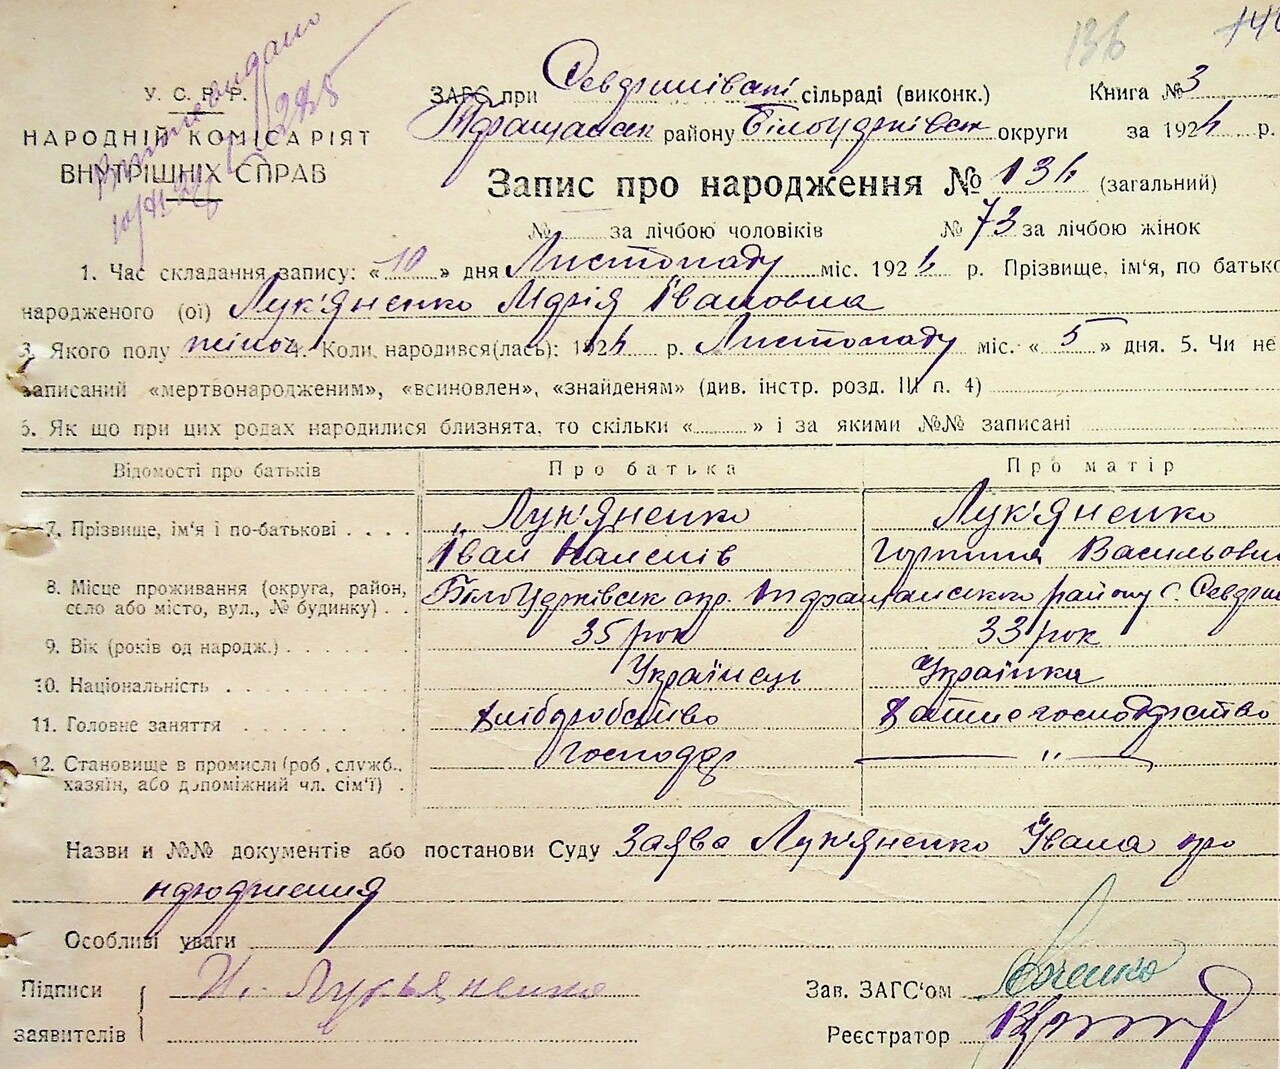 136
У. С. Р. Р.
НАРОДНІЙ КОМІСАРІЯТ
ВНУТРІШНІХ СПРАВ
ЗАГС при сільраді (виконк.) Книга № 3
Таращанськ району Білоцерківськ округи за 1926 р.
Запис про народження № 136 (загальний)
№ за лічбою чоловіків № 73 за лічбою жінок
1. Час складання запису: «10» дня Листопаду міс. 1926 р. Прізвище, ім'я, по батько
народженого (ої) Лук'яненко Марія Івановна
3. Якого полу жіноч 4. Коли народився(лась): 1926 р. Листопаду міс. «5» дня. 5. Чи не
записаний «мертвонародженим», «всиновлен», «знайденям» (див. інстр. розд. III п. 4)
6. Як що при цих родах народилися близнята, то скільки « » і за якими №№ записані
Відомості про батьків Про батька Про матір
7. Прізвище, ім'я і по-батькові Лук'яненко Лук'яненко
Іван Горпина Васильовн
8. Місце проживання (округа, район, село або місто, вул., № будинку) Білоцерківськ окр. Таращанського району с.
9. Вік (років од народж.) 35 рок 33 рок
10. Національність Українець Українка
11. Головне заняття хліборобство хатнє господарство
12. Становище в промислі (роб., служб., господар "
хазяїн, або допоміжний чл. сім'ї)
Назви и №№ документів або постанови Суду Заява Лук'яненко Івана про
народження
Особливі уваги
Підписи И. Лукьяненко Зав. ЗАГС'ом
заявителів Реєстратор